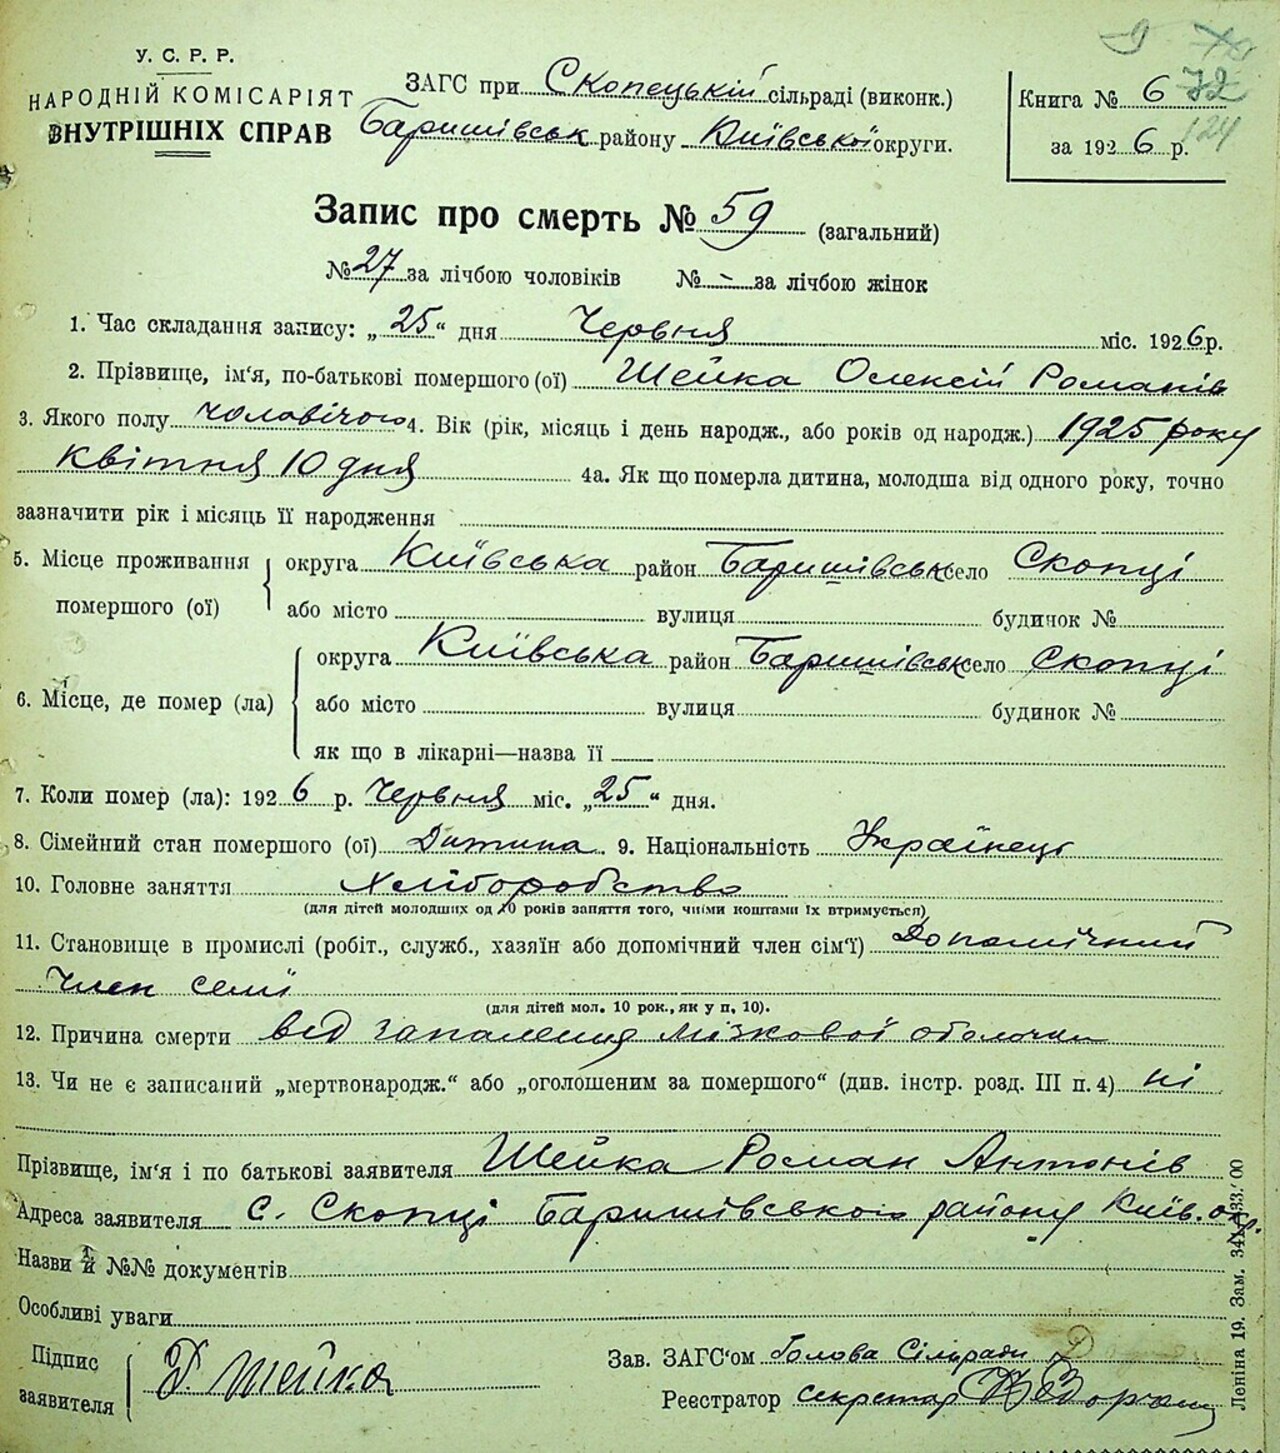 У. С. Р. Р.
НАРОДНІЙ КОМІСАРІЯТ
ВНУТРІШНІХ СПРАВ
ЗАГС при Скопецькій сільраді (виконк.)
Баришівськ району Київської округи.
Книга № 6 72
124
за 1926 р.
Запис про смерть № 59 (загальний)
№ 27 за лічбою чоловіків № - за лічбою жінок
1. Час складання запису: „25“ дня Червня міс. 1926 р.
2. Прізвище, ім'я, по-батькові помершого (ої) Шейка Олексій Романів
3. Якого полу чоловічого 4. Вік (рік, місяць і день народж., або років од народж.) 1925 року
квітня 10 дня 4а. Як що померла дитина, молодша від одного року, точно
зазначити рік і місяць її народження
5. Місце проживання помершого (ої) округа Київська район Баришівськ село Скопці
або місто вулиця будинок №
6. Місце, де помер (ла) округа Київська район Баришівськ село Скопці
або місто вулиця будинок №
як що в лікарні—назва її
7. Коли помер (ла): 1926 р. Червня міс. „25“ дня.
8. Сімейний стан помершого (ої) Дитина. 9. Національність Українець
10. Головне заняття Хліборобство
(для дітей молодших од 10 років заняття того, чиїми коштами їх втримується)
11. Становище в промислі (робіт., служб., хазяїн або допомічний член сім'ї) Допомічний
член семї
(для дітей мол. 10 рок., як у п. 10).
12. Причина смерти від запалення мізкової оболочки
13. Чи не є записаний „мертвонародж.“ або „оголошеним за помершого“ (див. інстр. розд. III п. 4) ні
Прізвище, ім'я і по батькові заявителя Шейка Роман Антонів
Адреса заявителя с. Скопці Баришівського району Київ. окр.
Назви й №№ документів
Особливі уваги
Підпис заявителя Р. Шейка
Зав. ЗАГС'ом Голова Сільради
Реєстратор секретар
Леніна 19. Зам.